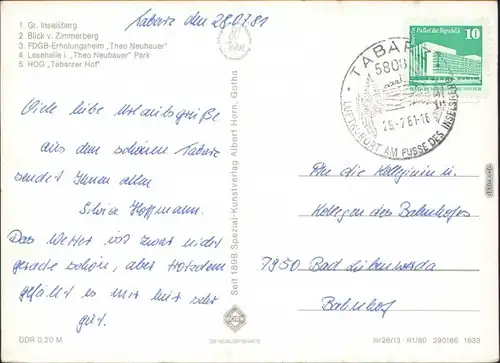 Tabarz den 28.07.81
1. Gr. Inselsberg
2. Blick v. Zimmerberg
3. FDGB-Erholungsheim „Theo Neubauer"
4. Lesehalle i „Theo Neubauer" Park
5. HOG „Tabarzer Hof"
Viele liebe Urlaubsgrüße
aus dem schönen Tabarz
sendet Ihnen allen
Silvia Hoffmann.
Das Wetter ist zwar nicht
gerade schön, aber trotzdem
gefällt es mir hier sehr
gut.
DDR 0,20 M
80 Jahre
Seit 1898 Spezial-Kunstverlag Albert Horn, Gotha
HORN
TABARZ
5808
LUFTKURORT AM FUSSE DES INSELSBERGES
Palast der Republik
10
An die Kolleginnen u.
Kollegen des Bahnhofes
7950 Bad Liebenwerda
Bahnhof
III/26/13 · R1/80 290186 1633